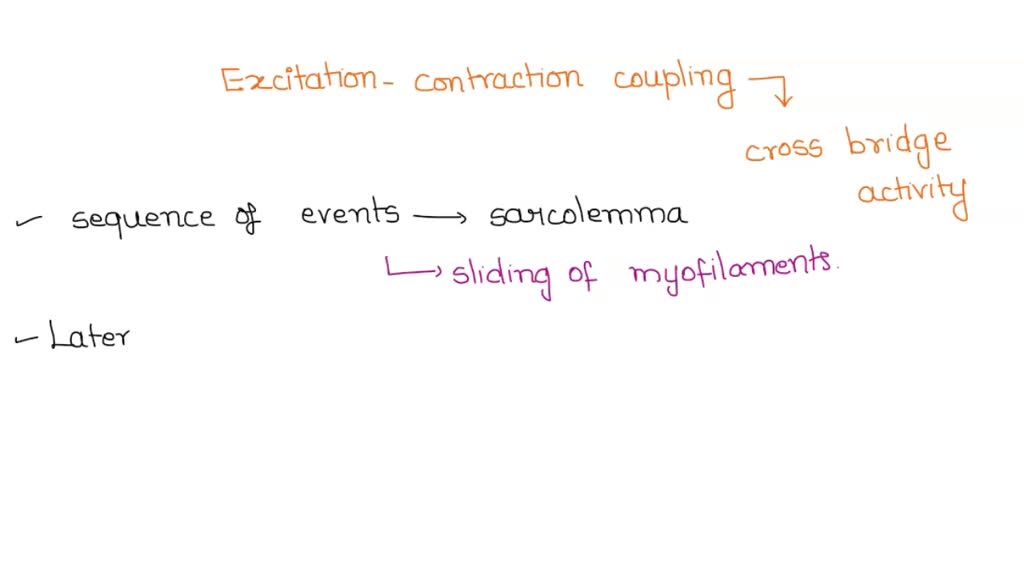 Excitation - contraction coupling
cross bridge
activity
sequence of events → sarcolemma
sliding of myofilaments.
Later